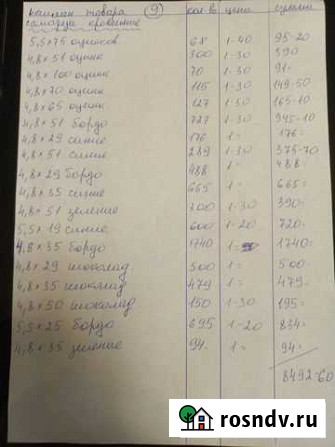 наимен товара 9 кол-в цена сумма
саморезы кровельные
5,5х75 оцинков 68 1-40 95-20
4,8х51 оцинк 300 1-30 390
4,8х100 оцинк 70 1-30 91-
4,8х70 оцинк 115 1-30 149-50
4,8х65 оцинк 127 1-30 165-10
4,8х51 бордо 727 1-30 945-10
4,8х29 синие 176 1= 176=
4,8х51 синие 289 1-30 375-70
4,8х29 бордо 488 1= 488=
4,8х35 синие 665 1= 665=
4,8х51 зеленые 300 1-30 390=
5,5х19 синие 600 1-20 720=
4,8х35 бордо 1740 1= 1740=
4,8х29 шоколад 500 1= 500=
4,8х35 шоколад 479 1= 479=
4,8х50 шоколад 150 1-30 195=
5,5х25 бордо 695 1-20 834=
4,8х35 зеленые 94 1= 94=
8492-60
rosndv.ru